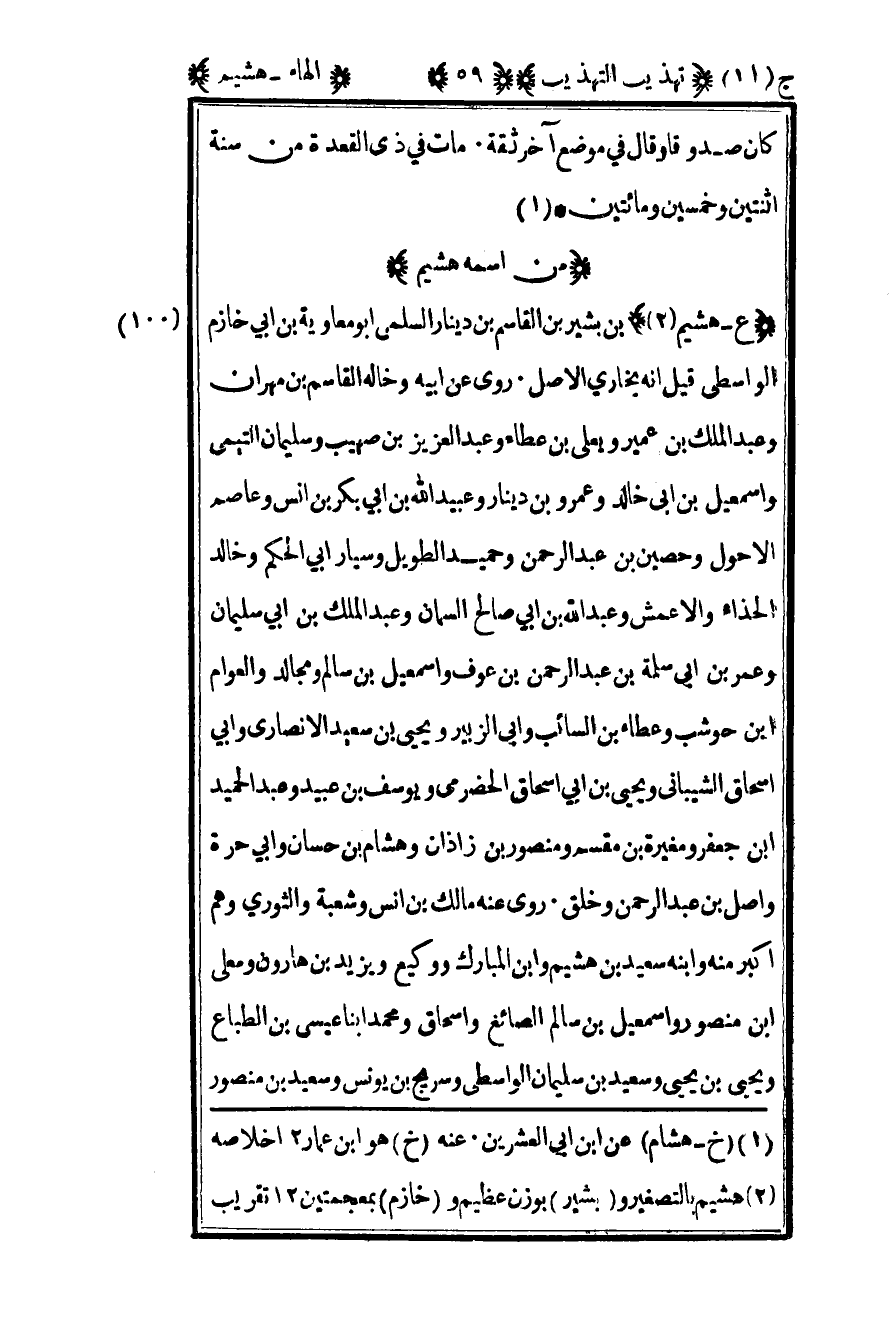 ج(١١) ﴿ تهذيب التهذيب ﴾ ﴿ ٥٩ ﴾ ﴿ الهاء ـ هشيم ﴾
كان صـدوقا وقال في موضع آخر ثقة ٠ مات في ذي القعدة من سنة
اثنتين وخمسين ومائتين ٠(١)
﴿ من اسمه هشيم ﴾
﴿ ع ـ هشيم (٢)﴾ بن بشير بن القاسم بن دينار السلمى ابو معاوية بن ابي خازم (١٠٠)
الواسطى قيل انه بخاري الاصل ٠ روى عن ابيه وخاله القاسم بن مهران
وعبد الملك بن عمير ويعلى بن عطاء وعبد العزيز بن صهيب وسليمان التيمى
واسمعيل بن ابى خالد وعمرو بن دينار وعبيد الله بن ابي بكر بن انس وعاصم
الاحول وحصين بن عبد الرحمن وحميـد الطويل وسيار ابي الحكم وخالد
الحذاء والاعمش وعبد الله بن ابي صالح السمان وعبد الملك بن ابي سليمان
وعمر بن ابي سلمة بن عبد الرحمن بن عوف واسمعيل بن سالم ومجالد والعوام
ابن حوشب وعطاء بن السائب وابي الزبير ويحيى بن سعيد الانصارى وابي
اسحاق الشيبانى ويحيى بن ابي اسحاق الحضرمى ويوسف بن عبيد وعبد الحميد
ابن جعفر ومغيرة بن مقسم ومنصور بن زاذان وهشام بن حسان وابي حرة
واصل بن عبد الرحمن وخلق ٠ روى عنه مالك بن انس وشعبة والثوري وهم
اكبر منه وابنه سعيد بن هشيم وابن المبارك ووكيع ويزيد بن هارون ومعلى
ابن منصور واسمعيل بن سالم الصائغ واسحاق ومحمد ابنا عيسى بن الطباع
ويحيى بن يحيى وسعيد بن سليمان الواسطى وسريج بن يونس وسعيد بن منصور
(١) (خ ـ هشام) عن ابن ابي العشرين ٠ عنه (خ) هو ابن عمار ٢ اخلاصه
(٢) هشيم بالتصغير و( بشير ) بوزن عظيم و (خازم) بمعجمتين ١٢ تقريب